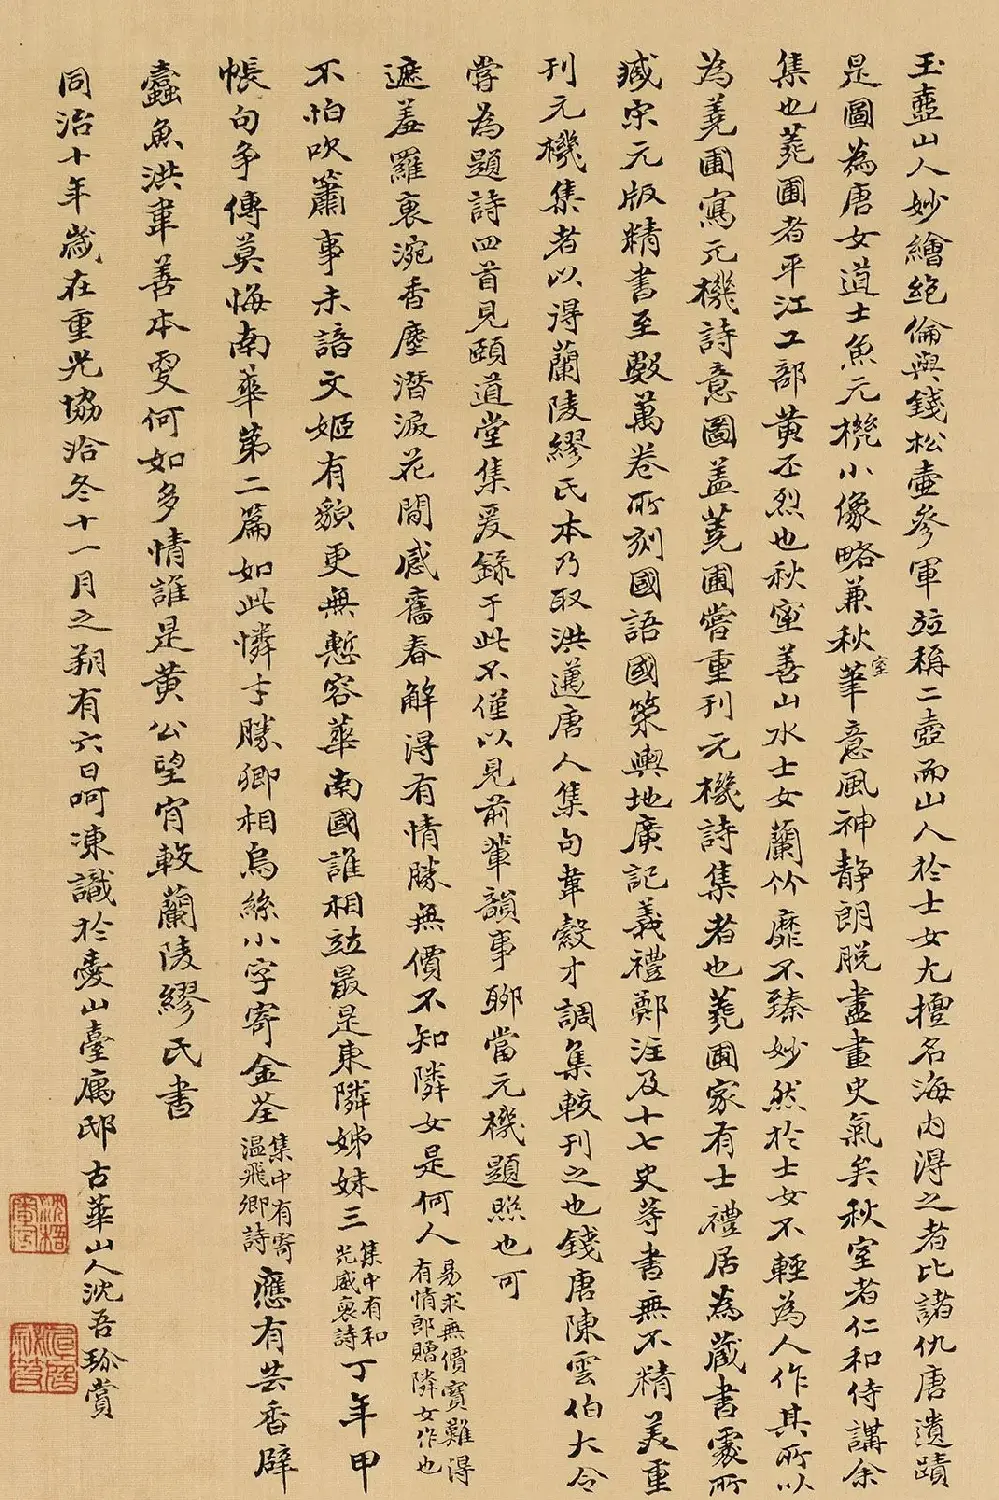 玉壺山人妙繪絕倫與錢松壺參軍竝稱二壺而山人於士女尤擅名海內得之者比諸仇唐遺蹟
是圖為唐女道士魚元機小像略兼秋室筆意風神靜朗脫盡畫史氣矣秋室者仁和侍講余
集也蕘圃者平江工部黃丕烈也秋室善山水士女蘭竹靡不臻妙然於士女不輕為人作其所以
為蕘圃寫元機詩意圖蓋蕘圃嘗重刊元機詩集者也蕘圃家有士禮居為藏書處所
臧宋元版精書至數萬卷所刻國語國策輿地廣記義禮鄭注及十七史等書無不精美重
刊元機集者以得蘭陵繆氏本乃取洪邁唐人集句韋縠才調集較刊之也錢唐陳雲伯大令
嘗為題詩四首見頤道堂集爰錄于此不僅以見前輩韻事聊當元機題照也可
遮羞羅裹涴香塵潛淚花間感舊春解得有情勝無價不知隣女是何人易求無價寶難得有情郎贈隣女作也
不怕吹簫事未諳文姬有貌更無慙容華南國誰相竝最是東隣姊妹三集中有和光威裒詩丁年甲
帳句爭傳莫悔南華第二篇如此憐才勝卿相烏絲小字寄金荃集中有寄溫飛卿詩應有芸香辟
蠹魚洪韋善本更何如多情誰是黃公望肎較蘭陵繆氏書
同治十年歲在重光協洽冬十一月之朔有六日呵凍識於夔山臺寓邸古華山人沈吾珍賞